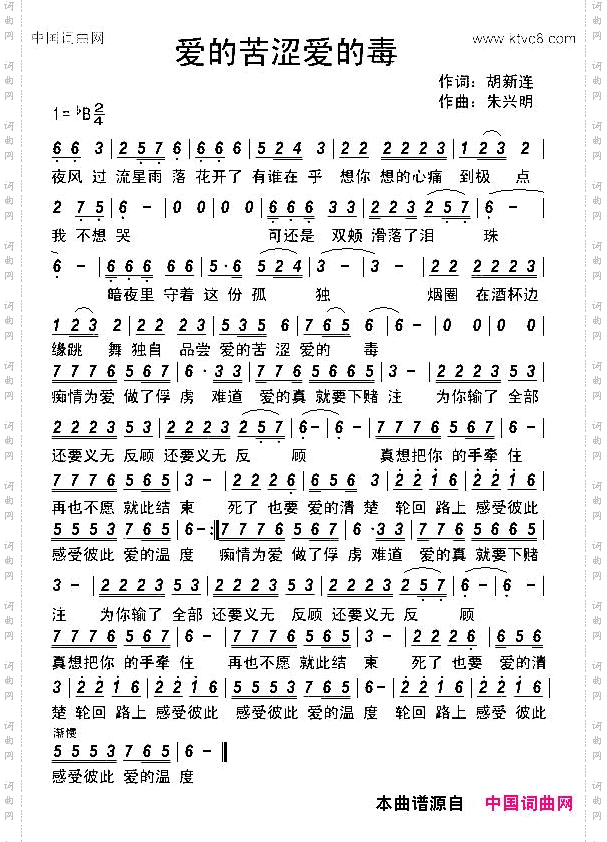 中国词曲网
www.ktvc8.com
爱的苦涩爱的毒
作词：胡新连
作曲：朱兴明
1=♭B 2/4
6 6 3 | 2 5 7 6 | 6 6 6 | 5 2 4 3 | 2 2 | 2 2 2 3 | 1 2 3 2 |
夜风 过 流星雨 落 花开了 有谁在 乎 想你 想的心痛 到极 点
2 7 5 | 6 - | 0 0 | 0 0 | 6 6 6 | 3 3 | 2 2 2 3 | 2 5 7 | 6 - |
我 不想 哭 可还是 双颊 滑落了泪 珠
6 - | 6 6 6 | 6 2 2 | 5·6 | 5 2 4 | 3 - | 3 - | 2 2 | 2 2 2 3 |
暗夜里 守着 这 份 孤 独 烟圈 在酒杯边
1 2 3 | 2 | 2 2 2 | 5·3 | 2 2 2 5 | 7 6 5 | 6 - | 6 - | 0 0 |
缘跳 舞 独自 品尝 爱的苦 涩 爱的 毒
7 7 7 6 | 5 6 7 | 6·3 3 | 7 7 7 6 | 5 6 7 5 | 3 - | 2 2 2 3 | 5 2 3 |
痴情为爱 做了俘 虏 难道 爱的真 就要下赌 注 为你输了 全部
2 2 2 3 | 5 2 3 | 2 2 2 3 | 2 5 7 | 6 - | 6 - | 7 7 7 6 | 5 6 7 | 6 |
还要义无 反顾 还要义无 反 顾 真想把你 的手牵 住
7 7 7 6 | 5 6 7 5 | 3 | 2 2 1 6 | 6 5 6 | 3 | 2 2 1 6 | 2 2 1 6 |
再也不愿 就此结 束 死了 也要 爱的清 楚 轮回 路上 感受彼此
5 5 5 3 | 7 6 5 | 6 - :| 7 7 7 6 | 5 6 7 | 6·3 3 | 7 7 7 6 | 5 6 7 5 |
感受彼此 爱的温 度 痴情为爱 做了俘 虏 难道 爱的真 就要下赌
3 - | 2 2 2 3 | 5 2 3 | 2 2 2 3 | 5 2 3 | 2 2 2 3 | 2 5 7 | 6 - | 6 - |
注 为你输了 全部 还要义无 反顾 还要义无 反 顾
7 7 7 6 | 5 6 7 | 6 | 7 7 7 6 | 5 6 7 5 | 3 - | 2 2 1 6 | 6 5 6 |
真想把你 的手牵 住 再也不愿 就此结 束 死了 也要 爱的清
3 | 2 2 1 6 | 2 2 1 6 | 5 5 5 3 | 7 6 5 | 6 | 2 2 1 6 | 2 2 1 6 |
楚 轮回 路上 感受彼此 感受彼此 爱的温 度 轮回 路上 感受彼此
渐慢
5 5 5 3 | 7 6 5 | 6 - ‖
感受彼此 爱的温 度
本曲谱源自 中国词曲网